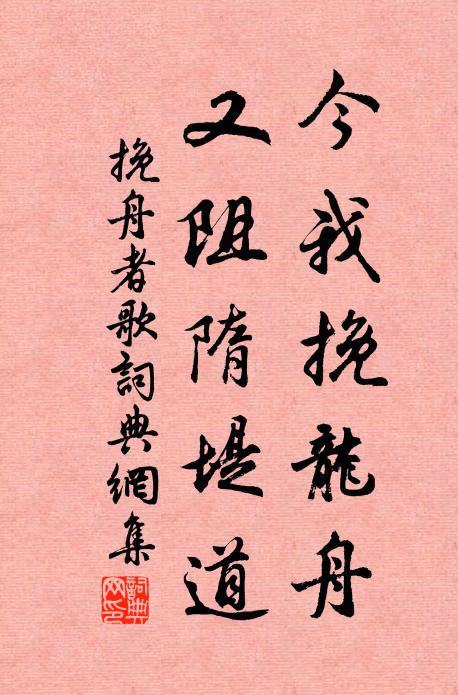 今我挽龍舟
又阻隋堤道
挽舟者歌詞典網集
詞典
网印